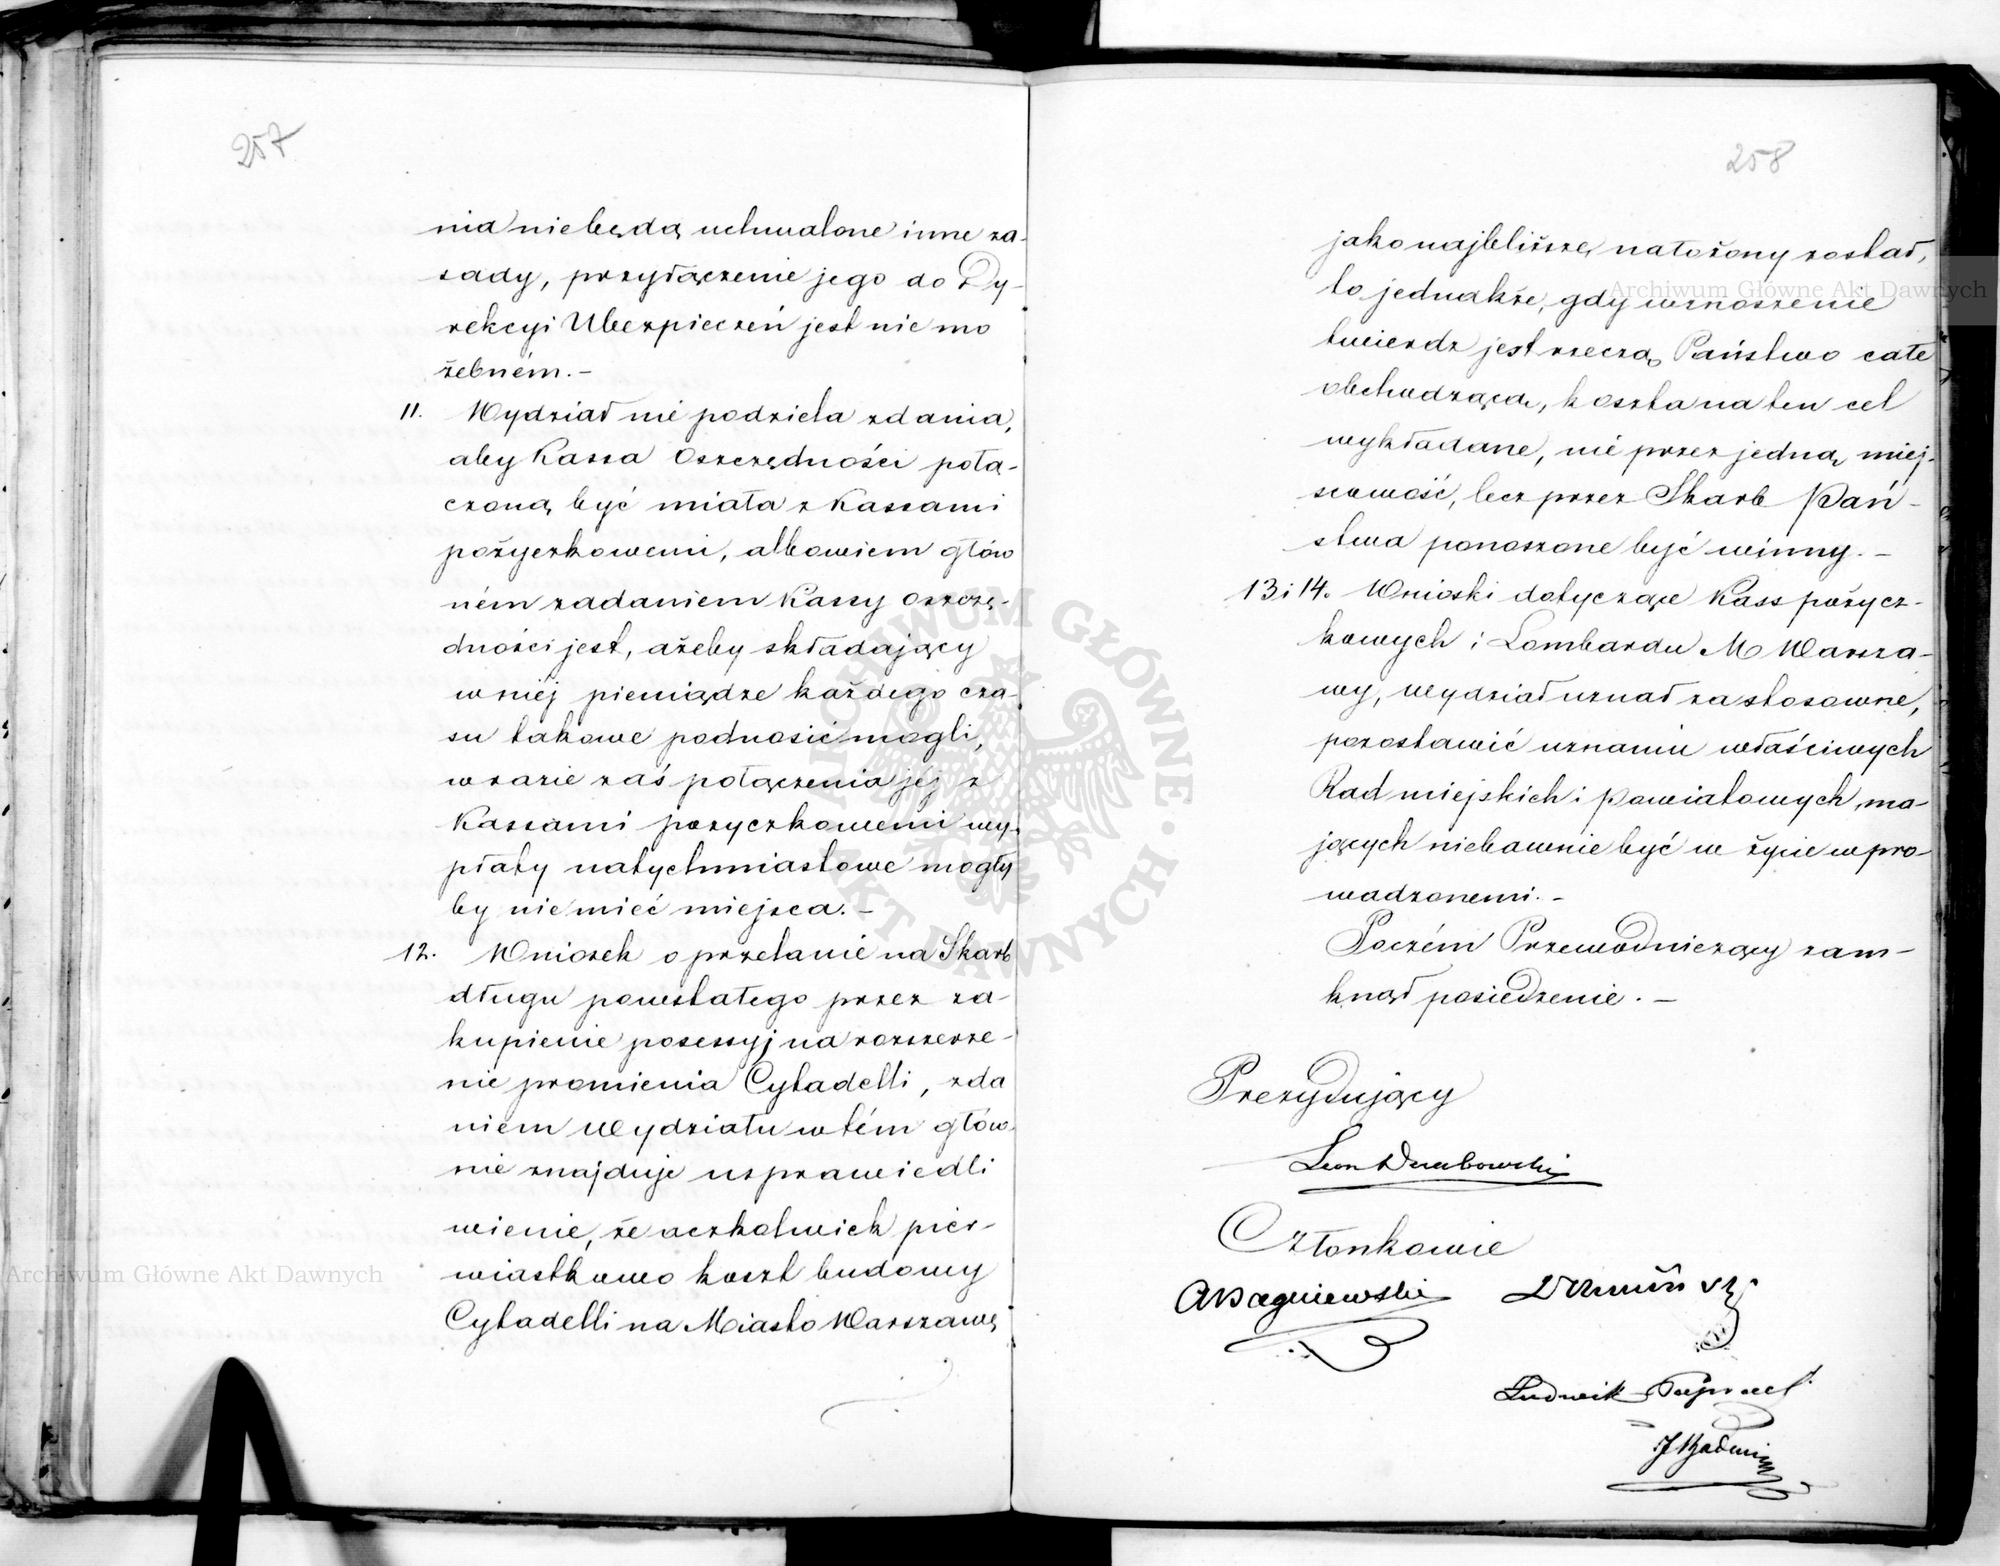 257
nia nie będą uchwalone inne za-
sady, przyłączenie jego do Dy-
rekcyi Ubezpieczeń jest nie mo
żebném. –
11. Wydział nie podziela zdania,
aby Kassa Oszczędności połą-
czoną być miała z Kassami
pożyczkowemi, albowiem głów
ném zadaniem Kassy oszczę-
dności jest, ażeby składający
w niej pieniądze każdego cza-
su takowe podnosić mogli,
w razie zaś połączenia jej z
Kassami pożyczkowemi wy-
płaty natychmiastowe mogły
by nie mieć miejsca. –
12. Wniosek o przelanie na Skarb
długu powstałego przez za-
kupienie posessyj na rozszerze-
nie promienia Cytadelli, zda
niem wydziału w tém głów-
nie znajduje usprawiedli
wienie, że aczkolwiek pier-
wiastkowo koszt budowy
Cytadelli na Miasto Warszawę
258
jako najbliższe, nałożony został,
to jednakże, gdy wznoszenie
twierdz jest rzeczą Państwo całe
obchodzącą, koszta na ten cel
wykładane, nie przez jedną miej-
scowość, lecz przez Skarb Pań-
stwa ponoszone być winny. –
13 i 14. Wnioski dotyczące Kass pożycz-
kowych i Lombardu M Warsza-
wy, wydział uznał za stosowne,
pozostawić uznaniu właściwych
Rad miejskich i powiatowych, ma-
jących niebawnie być w życie wpro-
wadzonemi. –
Poczém Przewodniczący zam-
knął posiedzenie. –
Prezydujący
Leon Dembowski
Członkowie
ABagniewski
Ludwik
Archiwum Główne Akt Dawnych
Archiwum Główne Akt Dawnych
ARCHIWUM GŁÓWNE · AKT DAWNYCH ·